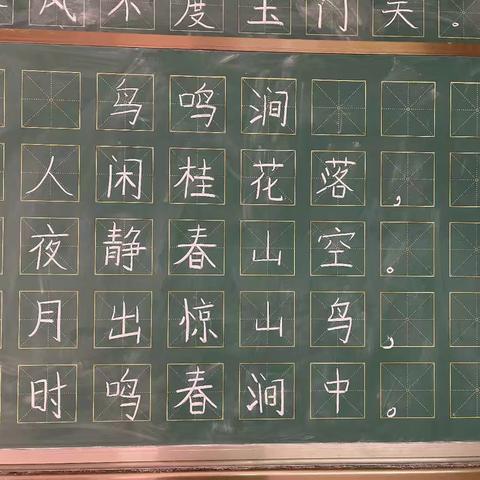 风不度玉门关。
鸟鸣涧
人闲桂花落，
夜静春山空。
月出惊山鸟，
时鸣春涧中。